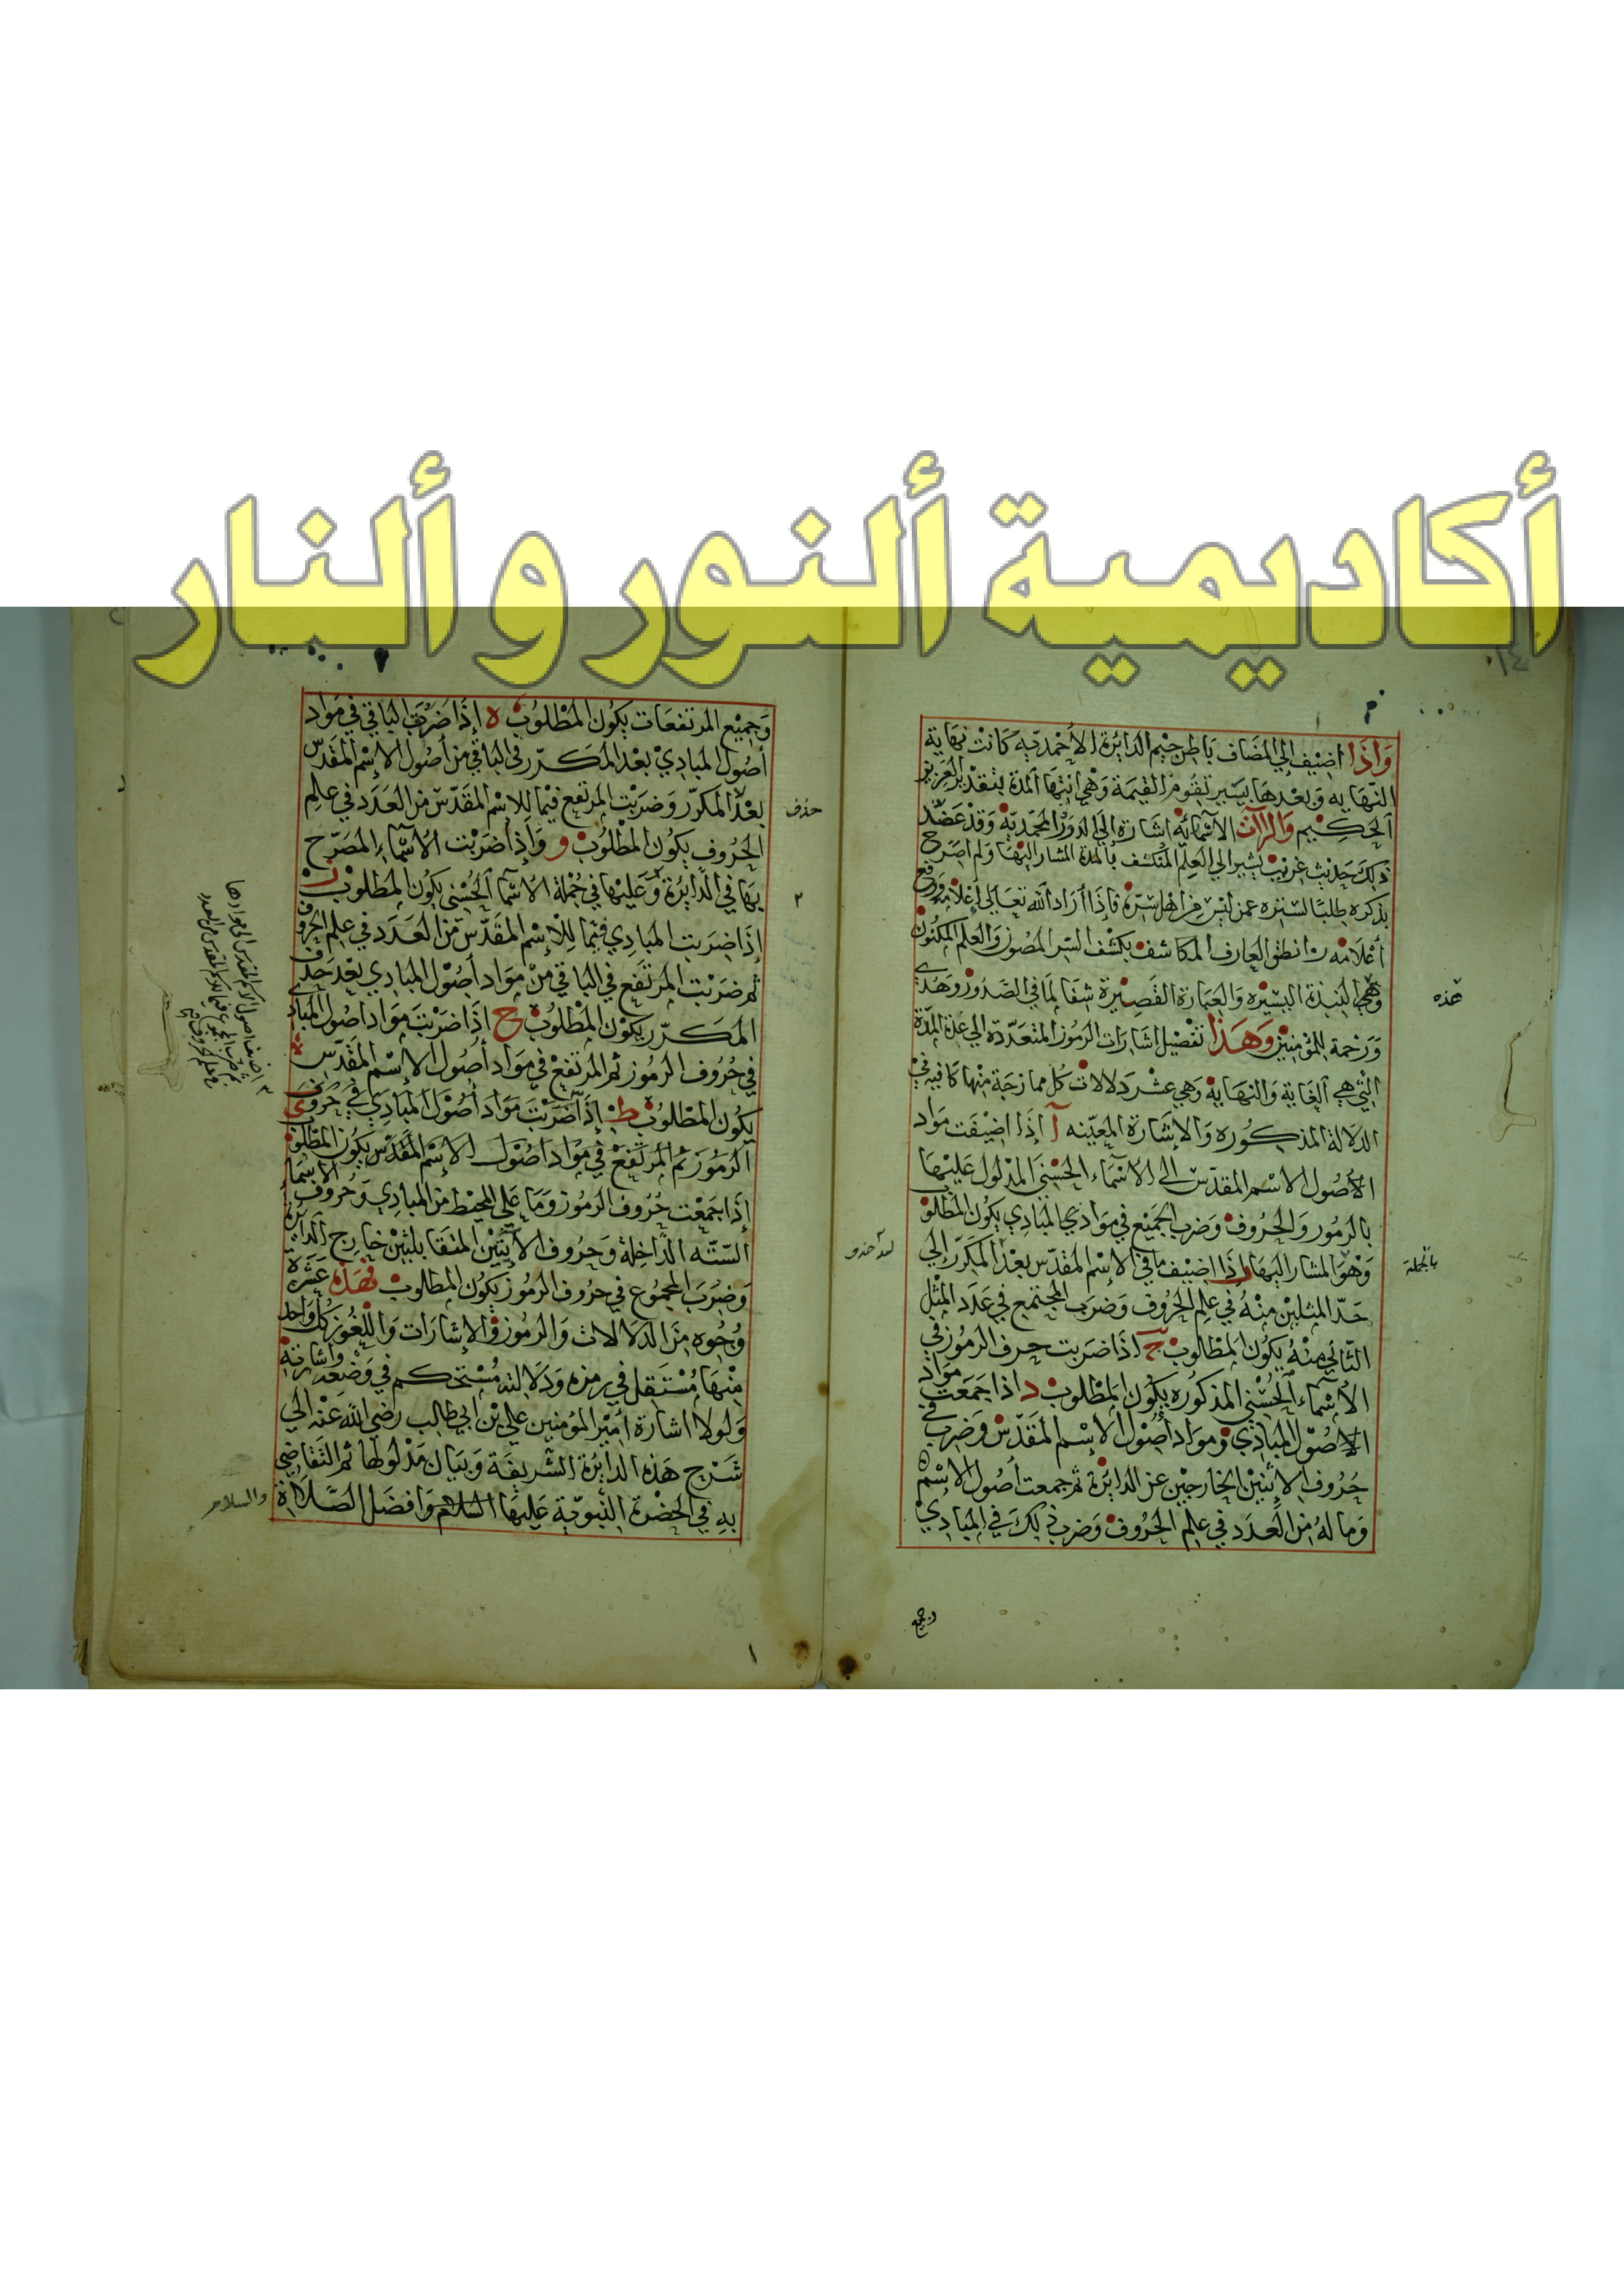 أكاديمية ألنور و ألنار
١٤
وَاذَا اضيف إلي المضاف باطن جيم الدائرة الأحمدية كانت نهاية
النهايه وبعدها بيسير تقوم القيمة وهي انتها المدة بتقدير العزيز
الحكيم والزآن الاسمائه اشارة الي الدور المحمدية وقد عضد
ذلك حديث غريب يشير الي العلم المكتنف بالمدة المشار اليها ولم اصرح
بذكره طلبا لستره عمن ليس من اهل سره فاذا أراد الله تعالي إعلامه ورفع
أعلامه انطق العارف المكاشف بكشف السر المصون والعلم المكنون
وهي النبذة اليسيره والعبارة القصيرة شفا لما في الصدور وهدي
ورحمة للمؤمنين وهذا تفصيل اشارات الرموز المتعدده الي عدة المدة
التي هي الغاية والنهاية وهي عشر دلالات كل ممازجة منها كافيه في
الدلالة المذكوره والإشارة المعينه آ إذا اضيفت مواد
الأصول الاسم المقدس الي الأسماء الحسني المدلول عليها
بالرموز والحروف وضرب الجميع في موادي المبادي يكون المطلوب
وهو المشار اليها ب إذا اضيف ما في الاسم المقدس بعد المكرر إلي
حد المثلين منه في علم الحروف وضرب المجتمع في عدد المثل
الثاني منه يكون المطلوب ج اذا ضربت حرف الرموز في
الأسماء الحسني المذكوره يكون المطلوب د اذا جمعت مواد
الاصول المبادي ومواد أصول الاسم المقدس وضرب في
حروف الاثنين الخارجين عن الدائرة ثم جمعت أصول الاسم
وماله من العدد في علم الحروف وضرب ذلك في المبادي
هذه
بالجملة
وجميع
وجميع المرتفعات يكون المطلوب ه إذا ضربت الباقي في مواد
أصول المبادي بعد المكرر في الباقي من أصول الاسم المقدس
بعد المكرر وضربت المرتفع فيما للاسم المقدس من العدد في علم
الحروف يكون المطلوب و وإذا ضربت الأسماء المصرح
بها في الدائرة وعليها في جملة الاسما الحسني يكون المطلوب ز
إذا ضربت المبادي فيما للاسم المقدس من العدد في علم الحروف
ثم ضربت المرتفع في الباقي من مواد أصول المبادي بعد حذف
المكرر يكون المطلوب ح اذا ضربت مواد اصول المبادي
في حروف الرموز ثم المرتفع في مواد أصول الاسم المقدس
يكون المطلوب ط إذا ضربت مواد أصول المبادي في حروف
الرموز ثم المرتفع في مواد اصول الاسم المقدس يكون المطلوب ي
إذا جمعت حروف الرموز وما علي المحيط من المبادي وحروف الاسماء
الستة الداخلة وحروف الاثنين المتقابلين خارج الدائرة
وضرب المجموع في حروف الرموز يكون المطلوب فهذه عشرة
وجوه من الدلالات والرموز والإشارات واللغوز كل واحد
منها مستقل في رمزه ودلالته مستحكم في وضعه واشارته
ولولا اشارة امير المؤمنين علي بن ابي طالب رضي الله عنه الي
شرح هذه الدائرة الشريفة وبيان مدلولها ثم التقاضي
به في الحضرة النبوية عليها السلام وافضل الصلاة
والسلام
حذف
٢